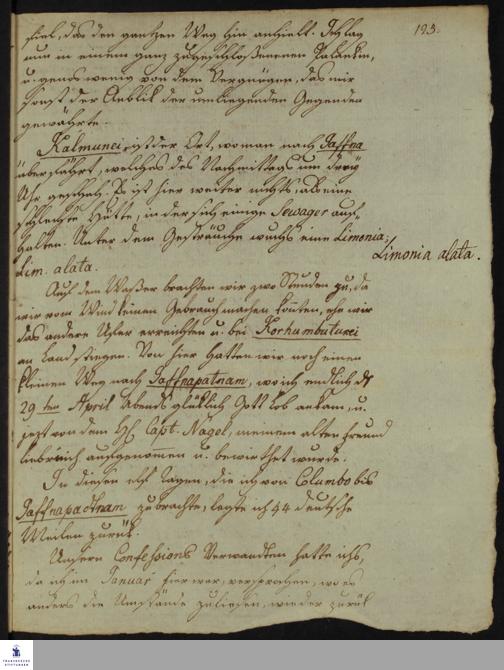 195.
fiel, das den gantzen Weg hin anhielt. Ich lag
nun in einem ganz zugeschloßenen Palankin,
u. genos wenig von dem Vergnügen, das mir
sonst der Anblik der umliegenden Gegenden
gewährte.
Kalmunei, ist der Ort, wo man nach Jaffna
überfährt, welches des Nachmittags um drey
Uhr geschah. Es ist hier weiter nichts, als eine
schlechte Hütte, in der sich einige Sewager auf-
halten. Unter dem Gesträuche wuchs eine Limonia;
Limonia alata.
Lim. alata.
Auf dem Waßer brachten wir zwo Stunden zu, da
wir vom Wind keinen Gebrauch machen konten, ehe wir
das andere Ufer erreichten u. bei Korhumbuturei
an Land stiegen. Von hier hatten wir noch einen
kleinen Weg nach Jaffnapatnam, wo ich endlich d
29ten April Abends glüklich Gott lob ankam, u.
jezt von dem H. Capt. Nagel, meinem alten Freund
liebreich aufgenommen u. bewirthet wurde.
In diesen elf Tagen, die ich von Columbo bis
Jaffnapadnam zubrachte, legte ich 44 deutsche
Meilen zurük.
Unsern Confessions Verwandten hatte ichs,
da ich im Januar hier war, versprochen, wo es
anders die Umstände zuließen, wieder zurük
FRANCKESCHE STIFTUNGEN